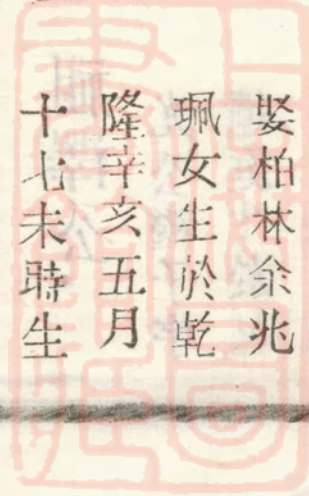 娶柏林余兆
珮女生於乾
隆辛亥五月
十七未時生